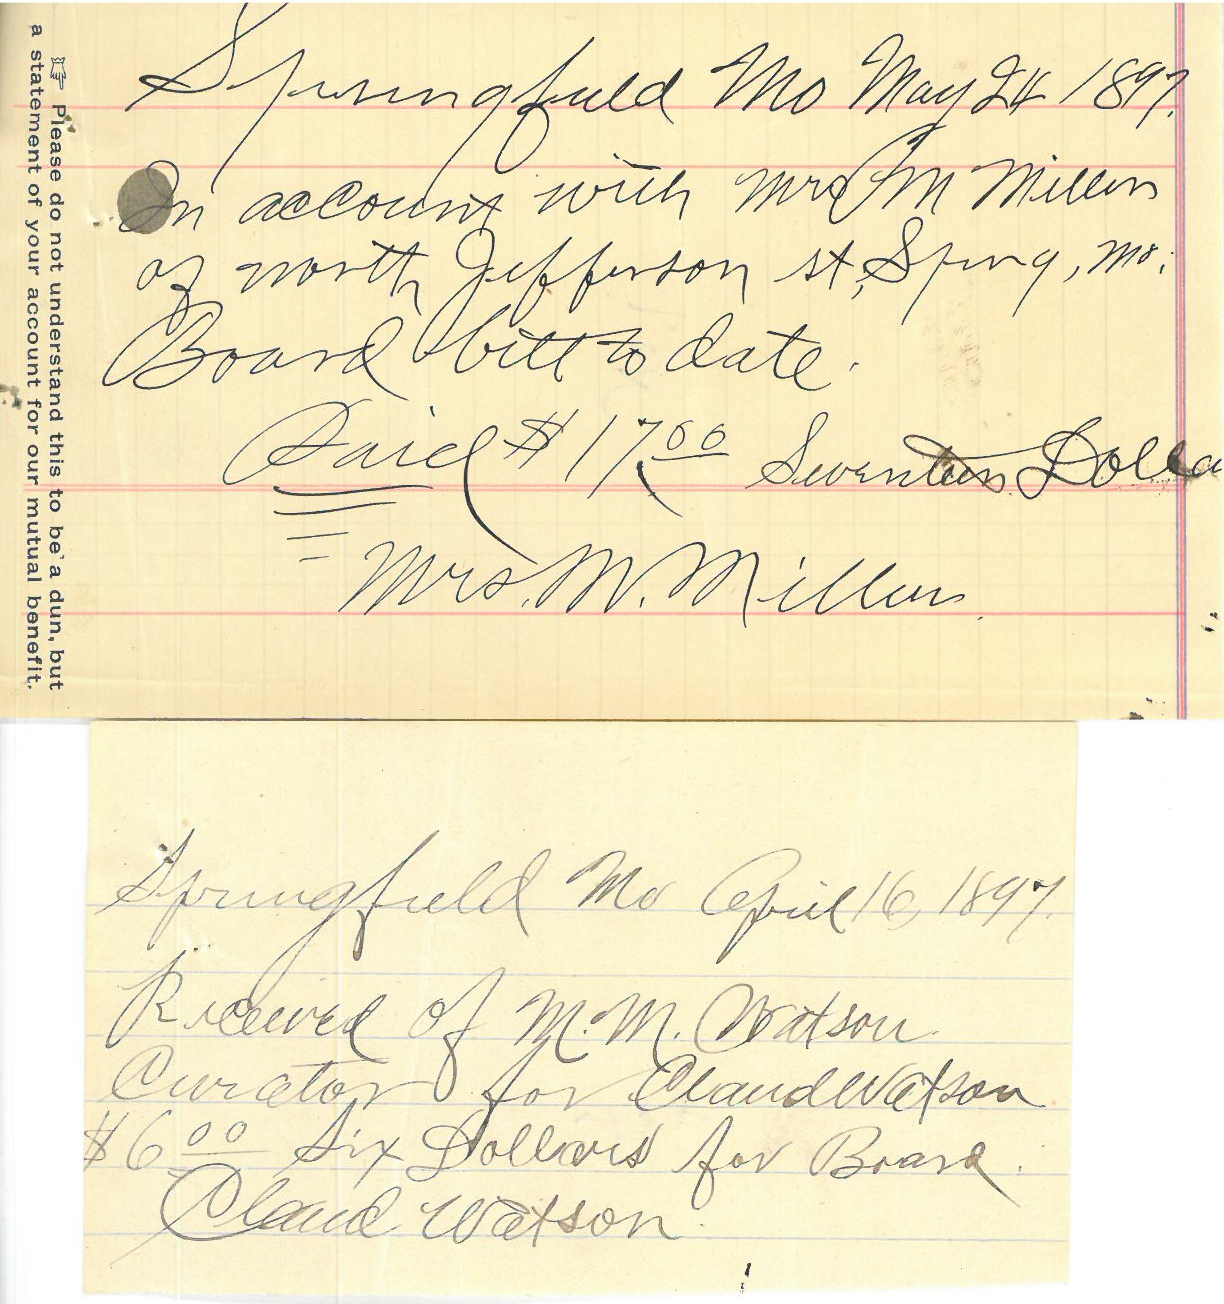 Springfield Mo May 24 1897.
In account with Mrs M Millers
of north Jefferson st, Spring, Mo.
Board bill to date.
Paid $17.00 Seventeen Dolla
Mrs. M. Millers.
☞ Please do not understand this to be a dun, but
a statement of your account for our mutual benefit.
Springfield Mo April 16, 1897.
Received of M. M. Watson
Curator for Claud Watson
$6.00 Six Dollars for Board.
Claud Watson.